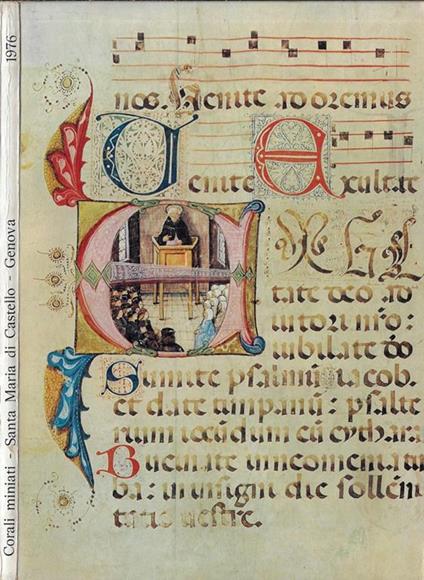 Corali miniati - Santa Maria di Castello - Genova 1976
nos. Venite adoremus
Venite Exultate
EXUL
tate deo ad
iutori nr̄o:
iubilate dō
Sumite psalmū iacob.
et date timpanū: psalte
rium iocūdum cū cythara
Bucinate in neomenia tu
ba: in insigni die sollēni
tatis vestre.